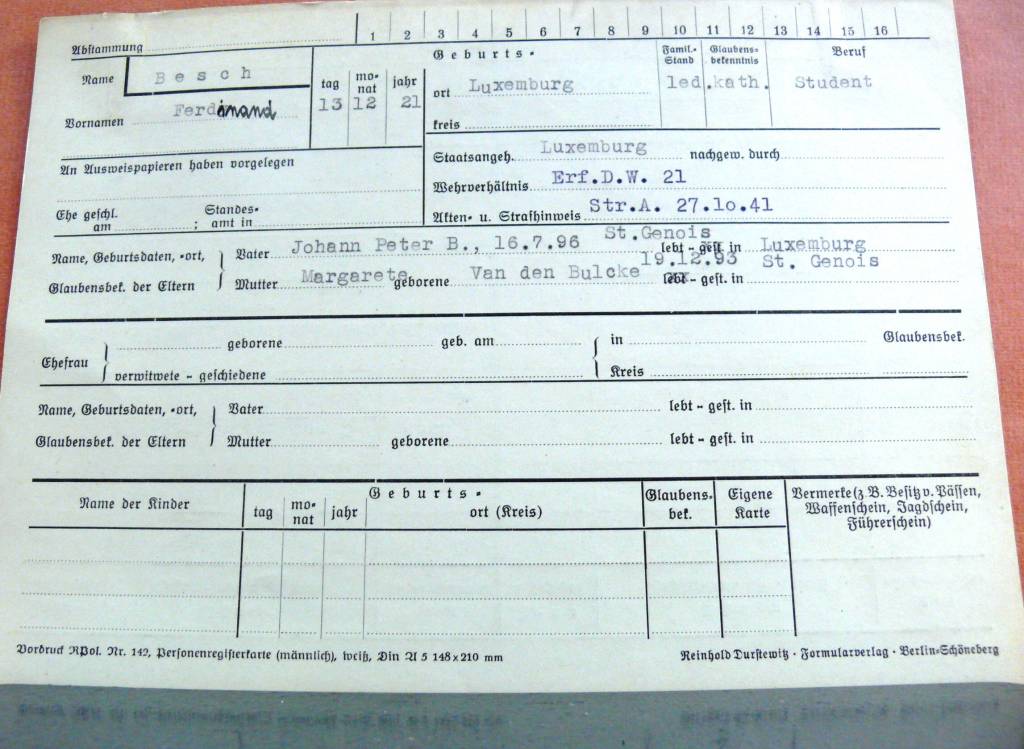 Abstammung 1 2 3 4 5 6 7 8 9 10 11 12 13 14 15 16
Name Besch tag monat jahr Geburts- Famil.-Stand Glaubensbekenntnis Beruf
ort Luxemburg led. kath. Student
Vornamen Ferdinand 13 12 21
kreis
An Ausweispapieren haben vorgelegen
Staatsangeh. Luxemburg nachgew. durch
Wehrverhältnis Erf.D.W. 21
Ehe geschl. am ; Standesamt in
Akten- u. Strafhinweis Str.A. 27.10.41
Name, Geburtsdaten, -ort, Glaubensbek. der Eltern
Vater Johann Peter B., 16.7.96 St.Genois lebt - gest. in Luxemburg
Mutter Margarete geborene Van den Bulcke 19.12.93 lebt - gest. in St. Genois
Ehefrau geborene geb. am in Glaubensbek.
verwitwete - geschiedene Kreis
Name, Geburtsdaten, -ort, Glaubensbek. der Eltern
Vater lebt - gest. in
Mutter geborene lebt - gest. in
Name der Kinder tag monat jahr Geburts- ort (Kreis) Glaubens-bek. Eigene Karte Vermerke (z.B. Besitz v. Pässen, Waffenschein, Jagdschein, Führerschein)
Vordruck RPol. Nr. 142, Personenregisterkarte (männlich), weiß, Din A 5 148x210 mm
Reinhold Durstewitz · Formularverlag · Berlin-Schöneberg